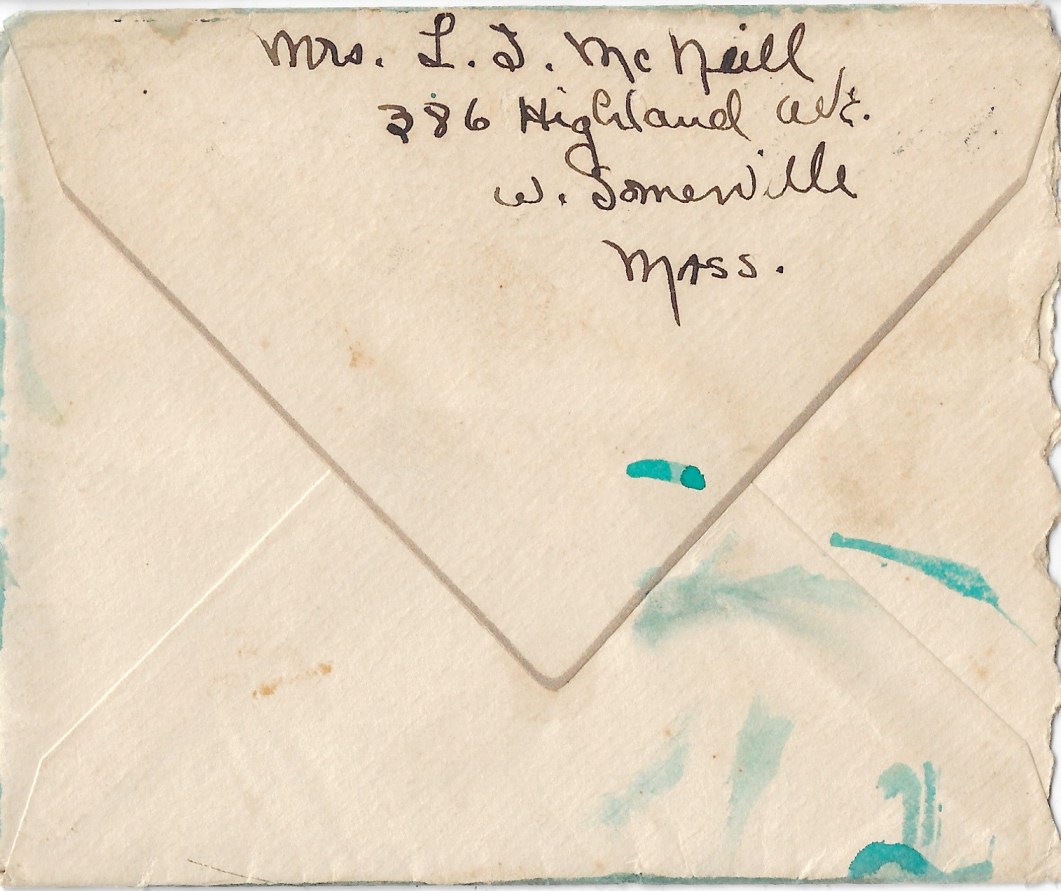 Mrs. L. J. McNeill
386 Highland Ave.
W. Somerville
Mass.